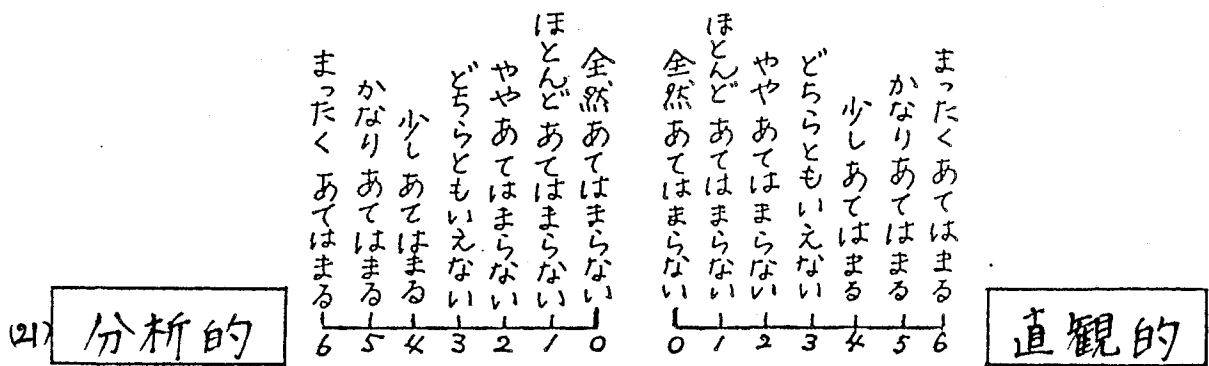 まったくあてはまる
かなりあてはまる
少しあてはまる
どちらともいえない
ややあてはまらない
ほとんどあてはまらない
全然あてはまらない
全然あてはまらない
ほとんどあてはまらない
ややあてはまらない
どちらともいえない
少しあてはまる
かなりあてはまる
まったくあてはまる
(21) 分析的 6 5 4 3 2 1 0 0 1 2 3 4 5 6 直観的